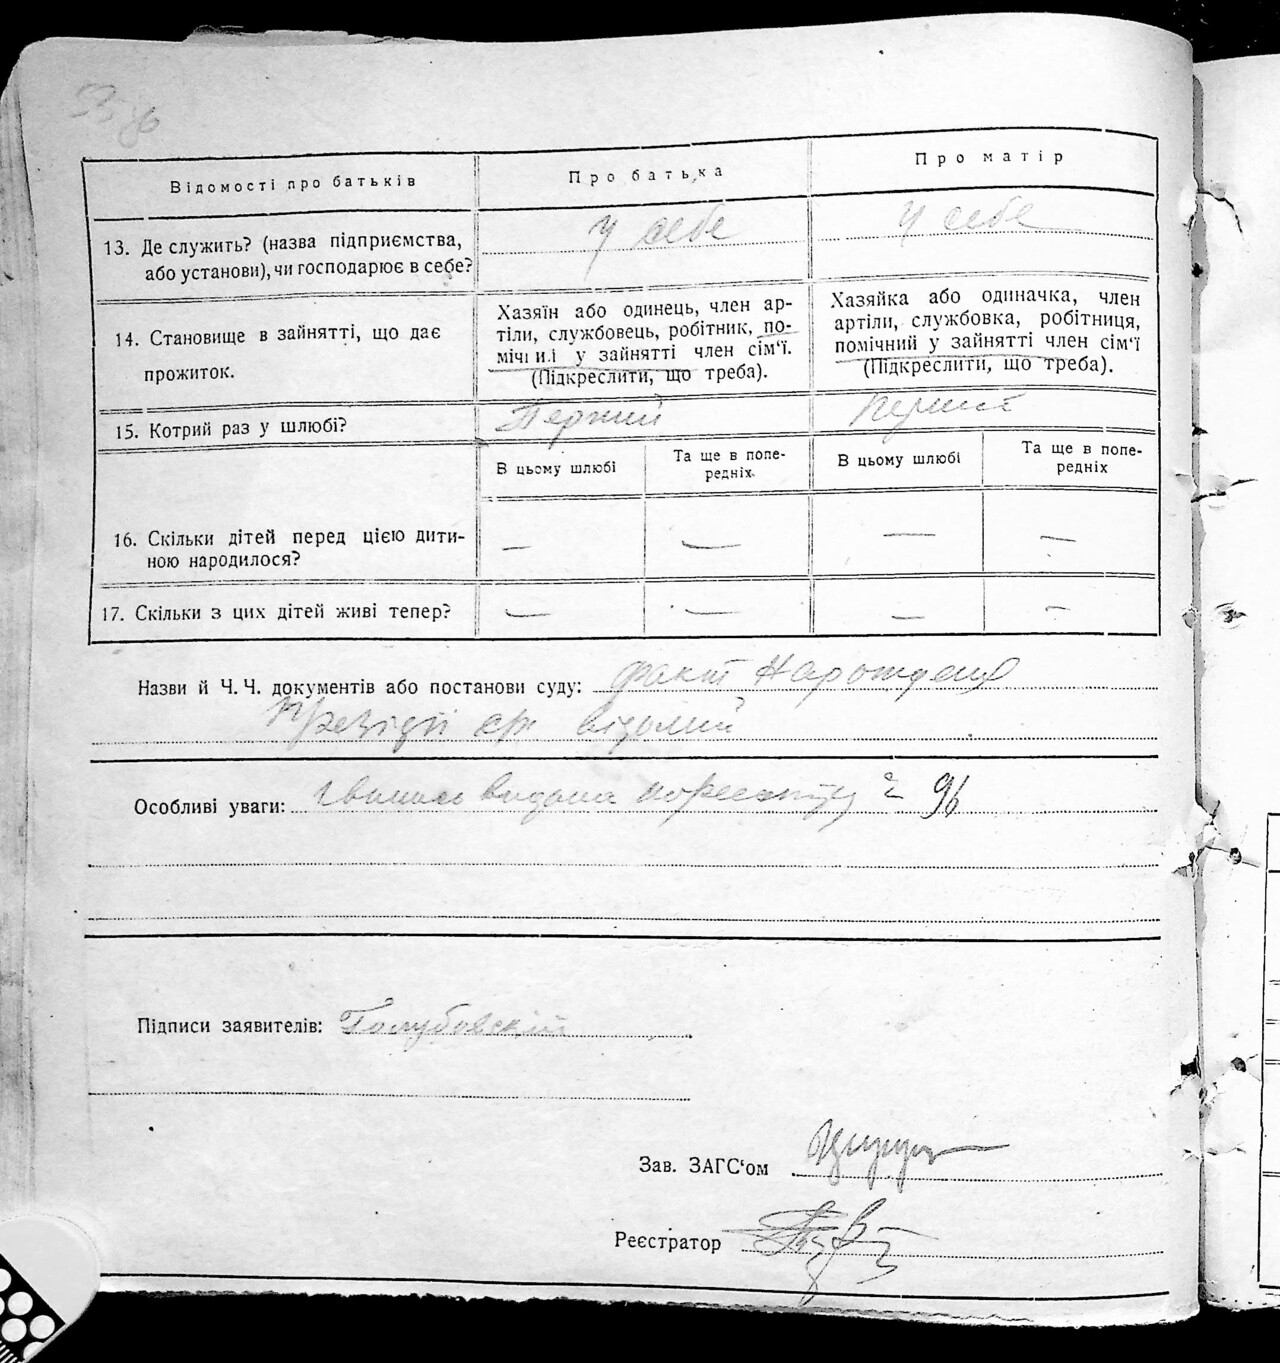 Відомості про батьків
Про батька
Про матір
13. Де служить? (назва підприємства,
або установи), чи господарює в себе?
у себе
у себе
14. Становище в зайнятті, що дає
прожиток.
Хазяїн або одинець, член ар-
тіли, службовець, робітник, по-
мічний у зайнятті член сім'ї.
(Підкреслити, що треба).
Хазяйка або одиначка, член
артіли, службовка, робітниця,
помічний у зайнятті член сім'ї
(Підкреслити, що треба).
15. Котрий раз у шлюбі?
Перший
Перший
В цьому шлюбі
Та ще в попе-
редніх.
В цьому шлюбі
Та ще в попе-
редніх
16. Скільки дітей перед цією дити-
ною народилося?
— — — —
17. Скільки з цих дітей живі тепер?
— — — —
Назви й Ч. Ч. документів або постанови суду: факт Народженя
Презідії с/р відомий
Особливі уваги: видана 96
Підписи заявителів: Голубовский
Зав. ЗАГС'ом
Реєстратор